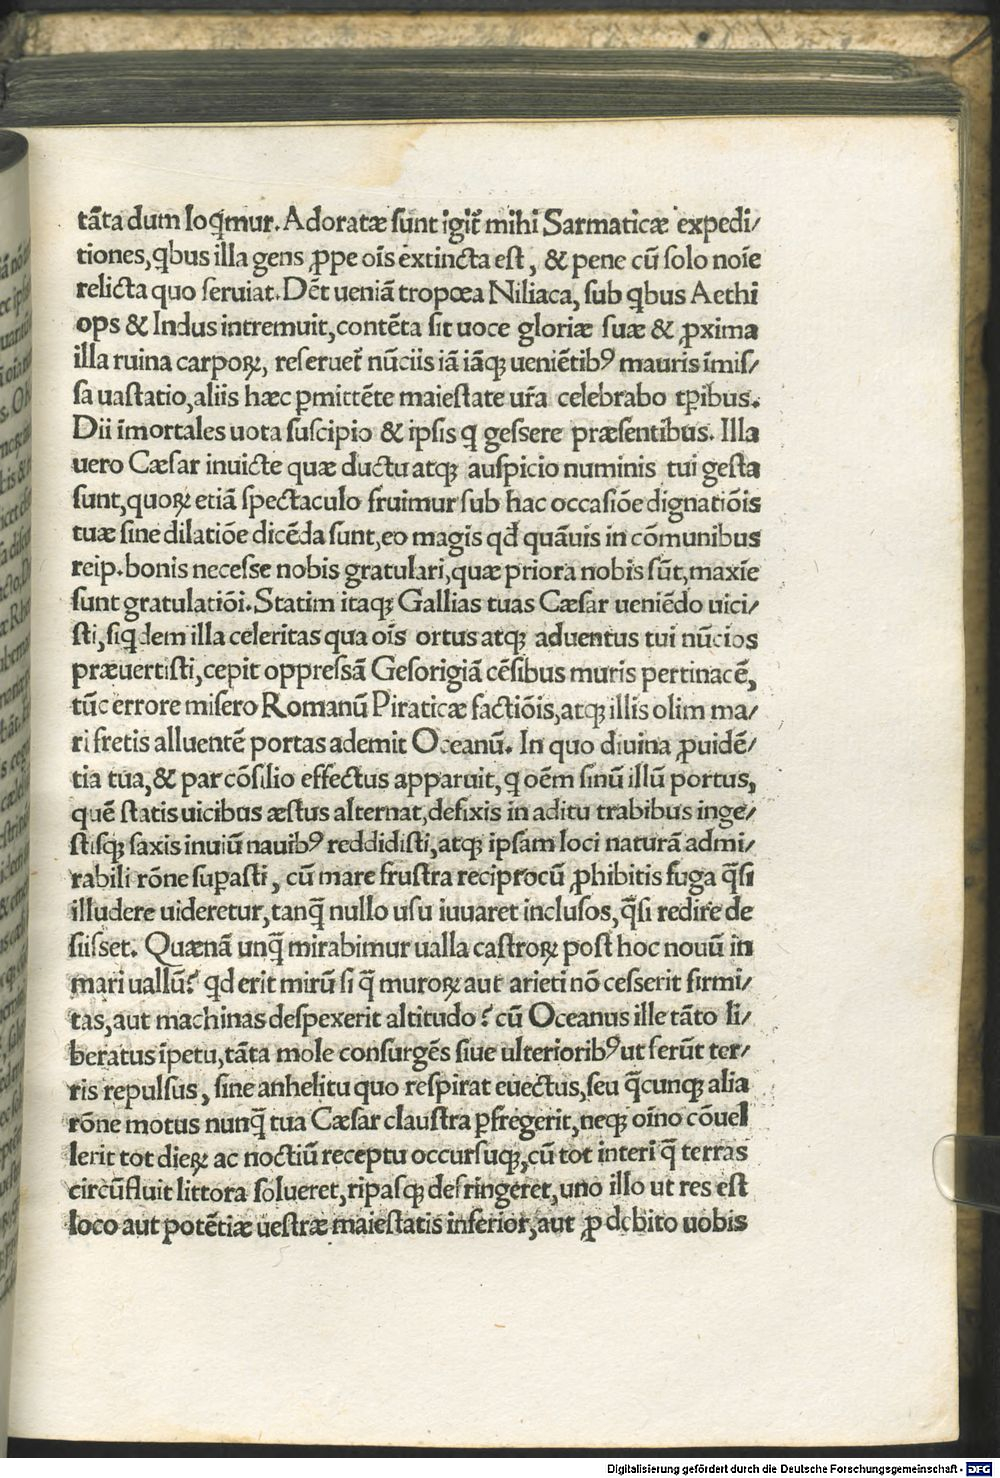 tāta dum loq̄mur. Adoratæ sunt igit᷑ mihi Sarmaticæ expedi/
tiones, qbus illa gens ꝓpe oīs extincta est, & pene cū solo noīe
relicta quo seruiat. Dēt ueniā tropœa Niliaca, sub qbus Aethi
ops & Indus intremuit, contēta sit uoce gloriæ suæ & ꝓxima
illa ruina carpoꝝ, reseruet᷑ nūciis iā iāqꝫ ueniētibꝰ mauris īmis/
sa uastatio, aliis hæc ꝑmittēte maiestate ur̄a celebrabo tꝑibus.
Dii īmortales uota suscipio & ipsis q gessere præsentibus. Illa
uero Cæsar inuicte quæ ductu atqꝫ auspicio numinis tui gesta
sunt, quoꝝ etiā spectaculo fruimur sub hac occasiōe dignatiōis
tuæ sine dilatiōe dicēda sunt, eo magis qđ quāuis in cōmunibus
reip. bonis necesse nobis gratulari, quæ priora nobis sūt, maxīe
sunt gratulatiōi. Statim itaqꝫ Gallias tuas Cæsar ueniēdo uici/
sti, siqdem illa celeritas qua oīs ortus atqꝫ aduentus tui nūcios
præuertisti, cepit oppressā Gesorigiā cēsibus muris pertinacē,
tūc errore misero Romanū Piraticæ factiōis, atqꝫ illis olim ma/
ri fretis alluentē portas ademit Oceanū. In quo diuina ꝓuidē/
tia tua, & par cōsilio effectus apparuit, q oēm sinū illū portus,
quē statis uicibus æstus alternat, defixis in aditu trabibus inge/
stisqꝫ saxis inuiū nauibꝰ reddidisti, atqꝫ ipsam loci naturā admi/
rabili rōne suꝑasti, cū mare frustra reciprocū ꝓhibitis fuga q̄si
illudere uideretur, tanq̄ nullo usu iuuaret inclusos, q̄si redire de
siisset. Quænā unq̄ mirabimur ualla castroꝝ post hoc nouū in
mari uallū? qd erit mirū si q̄ muroꝝ aut arieti nō cesserit firmi/
tas, aut machinas despexerit altitudo? cū Oceanus ille tāto li/
beratus īpetu, tāta mole consurgēs siue ulterioribꝰ ut ferūt ter/
ris repulsus, sine anhelitu quo respirat euectus, seu q̄cunqꝫ alia
rōne motus nunq̄ tua Cæsar claustra ꝑfregerit, neqꝫ oīno cōuel
lerit tot dieꝝ ac noctiū receptu occursuqꝫ, cū tot interi q̄ terras
circūfluit littora solueret, ripasqꝫ defringeret, uno illo ut res est
loco aut potētiæ uestræ maiestatis inferior, aut ꝓ debito uobis
Digitalisierung gefördert durch die Deutsche Forschungsgemeinschaft - DFG